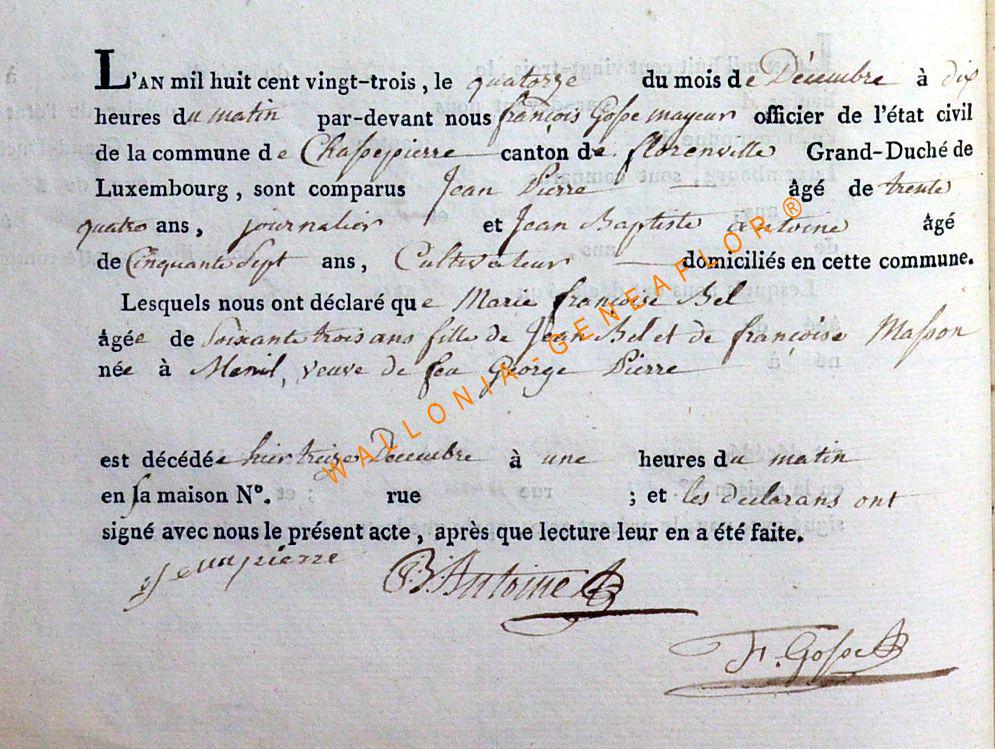 L'AN mil huit cent vingt-trois, le quatorze du mois de Décembre à dix
heures du matin par-devant nous françois Gosse mayeur officier de l'état civil
de la commune de Chassepierre canton de florenville Grand-Duché de
Luxembourg, sont comparus Jean Pierre âgé de trente
quatre ans, journalier et Jean Baptiste antoine âgé
de Cinquante Sept ans, Cultivateur domiciliés en cette commune.
Lesquels nous ont déclaré que Marie françoise Bel
âgée de Soixante trois ans fille de Jean Bel et de françoise Masson
née à Menil, veuve de feu George Pierre
est décédée hier treize Décembre à une heures du matin
en sa maison N°. rue ; et les declarans ont
signé avec nous le présent acte, après que lecture leur en a été faite.
Jean pierre JB Antoine
F. Gosse
WALLONIA-GENEAFLOR®